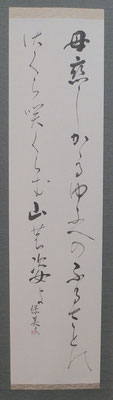 母恋しかゝるゆふへのふるさとの
さくら咲くらむ山の姿よ